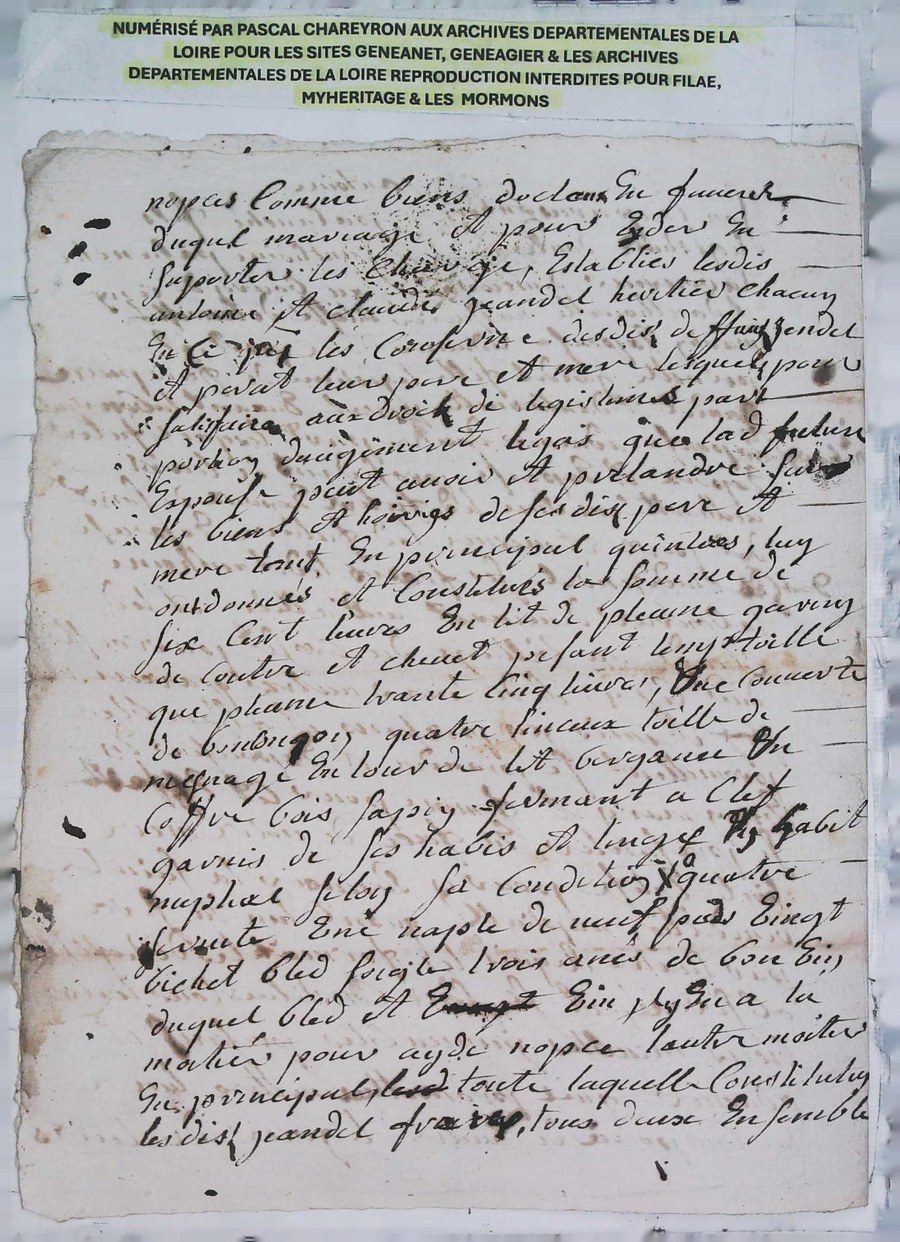 NUMÉRISÉ PAR PASCAL CHAREYRON AUX ARCHIVES DEPARTEMENTALES DE LA
LOIRE POUR LES SITES GENEANET, GENEAGIER & LES ARCHIVES
DEPARTEMENTALES DE LA LOIRE REPRODUCTION INTERDITES POUR FILAE,
MYHERITAGE & LES MORMONS
nopces Comme biens doctaux En faueur
duquel mariage Et pour Eyder En
suporter les Charge, Establies lesdis
antoine Et claude jeandel heritier chacun
En Ce qui les Conserne desdis deffuns jendel
Et perat leur pere Et mere lesquels pour
satisfaire aux droit de legistimes part
portion daugement legas que lad future
Espouse peut auoir Et pretandre sur
les biens Et hoiries de ses dis pere Et
mere tout En principal quintees, luy
ont donnés Et Constitués la somme de
six Cent liures En lit de pleume garny
de coutre Et cheuet pesant temp toille
que pleume trante Cinq liures, Une Couuerte
de quatre linceux toille de
mesnage En tour de lit bergame Un
Coffre bois sapin fermant a Clef
garnis de ses habis Et linge Un habit
nuptial selon sa Condition quatre
seruite Une napte de neuf pieds Vingt
bichet bled seigle trois anés de bon Vin
duquel bled Et Vin il y En a la
moitié pour ayde nopce lautre moitier
En principal, toute laquelle Constitution
lesdis jeandel freres, tous deux Ensemble